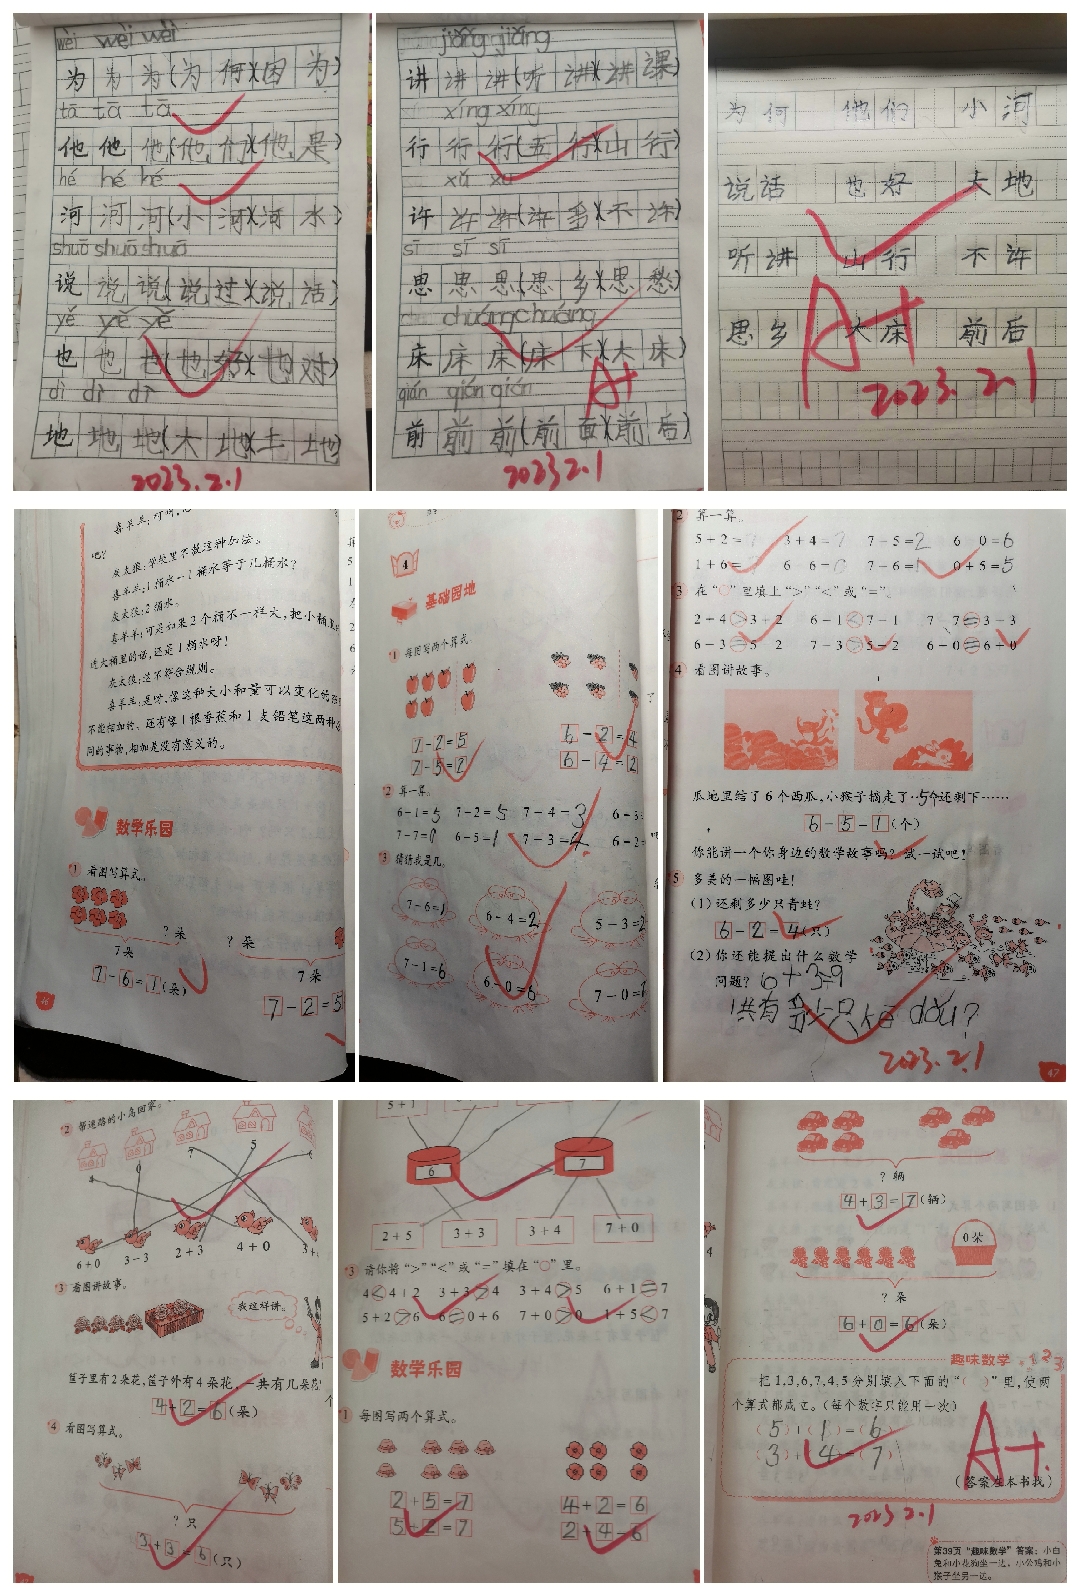 wèi wèi wèi
为 为 为(为 何)(因 为)
tā tā tā
他 他 他(他 们)(他 是)
hé hé hé
河 河 河(小 河)(河 水)
shuō shuō shuō
说 说 说(说 过)(说 话)
yě yě yě
也 也 也(也 好)(也 对)
dì dì dì
地 地 地(大 地)(土 地)
2023.2.1
jiǎng jiǎng
讲 讲 讲(听 讲)(讲 课)
xíng xíng
行 行 行(五 行)(山 行)
xǔ xǔ
许 许 许(许 多)(不 许)
sī sī sī
思 思 思(思 乡)(思 愁)
chuáng chuáng
床 床 床(床 下)(大 床)
A+
qián qián qián
前 前 前(前 面)(前 后)
2023.2.1
为何 他们 小河
说话 也好 大地
听讲 山行 不许
思乡 大床 前后
A+
2023.2.1
吧?
灰太狼:学校里不教这种加法。
喜羊羊:1桶水+1桶水等于几桶水?
灰太狼:2桶水。
喜羊羊:可是如果2个桶不一样大,把小桶里
进大桶里的话,还是1桶水呀!
灰太狼:这不符合规则。
喜羊羊:是呀,像这种大小和量可以变化的
不能相加的。还有像1根香蕉和1支铅笔这两种
同的事物,相加是没有意义的。
数学乐园
1 看图写算式。
? 朵
7朵
7-6=1(朵)
? 朵
7朵
7-2=5
46
4
基础园地
1 每图写两个算式。
7-2=5
7-5=2
6-2=4
6-4=2
2 算一算。
6-1=5 7-2=5 7-4=3 6-3=
7-7=0 6-5=1 7-3=4 6-2=
3 猜猜我是几。
7-6=1 6-4=2 5-3=2
7-1=6 6-0=6 7-0=7
2 算一算。
5+2=7 3+4=7 7-5=2 6-0=6
1+6= 6-6=0 7-6=1 0+5=5
3 在“○”里填上“>”“<”或“=”。
2+4>3+2 6-1<7-1 7-7=3-3
6-3=5-2 7-3>5-2 6-0=6+0
4 看图讲故事。
瓜地里结了6个西瓜,小猴子摘走了…5个还剩下……
6-5=1(个)
你能讲一个你身边的数学故事吗?试一试吧!
5 多美的一幅图哇!
(1)还剩多少只青蛙?
6-2=4(只)
(2)你还能提出什么数学
问题?6+3=9
共有多少只kē dǒu?
2023.2.1
47
2 帮迷路的小鸟回家。
5
6+0 3-3 2+3 4+0 3+
3 看图讲故事。
我这样讲。
筐子里有2朵花,筐子外有4朵花,一共有几朵花
4+2=6(朵)
4 看图写算式。
? 只
3+3=6(只)
5+1
6 7
2+5 3+3 3+4 7+0
3 请你将“>”“<”或“=”填在“○”里。
4<4+2 3+3>4 3+4>5 6+1=7
5+2>6 6=0+6 7+0>0 1+5<7
数学乐园
1 每图写两个算式。
2+5=7
5+2=7
4+2=6
2+4=6
? 辆
4+3=7(辆)
0朵
? 朵
6+0=6(朵)
趣味数学 123
把1,3,6,7,4,5分别填入下面的“( )”里,使两
个算式都成立。(每个数字只能用一次)
(5)+(1)=(6)
(3)+(4)=(7)
A+
(答案在本书找)
2023.2.1
第39页“趣味数学”答案:小白
兔和小花狗坐一边,小公鸡和小
猴子坐另一边。